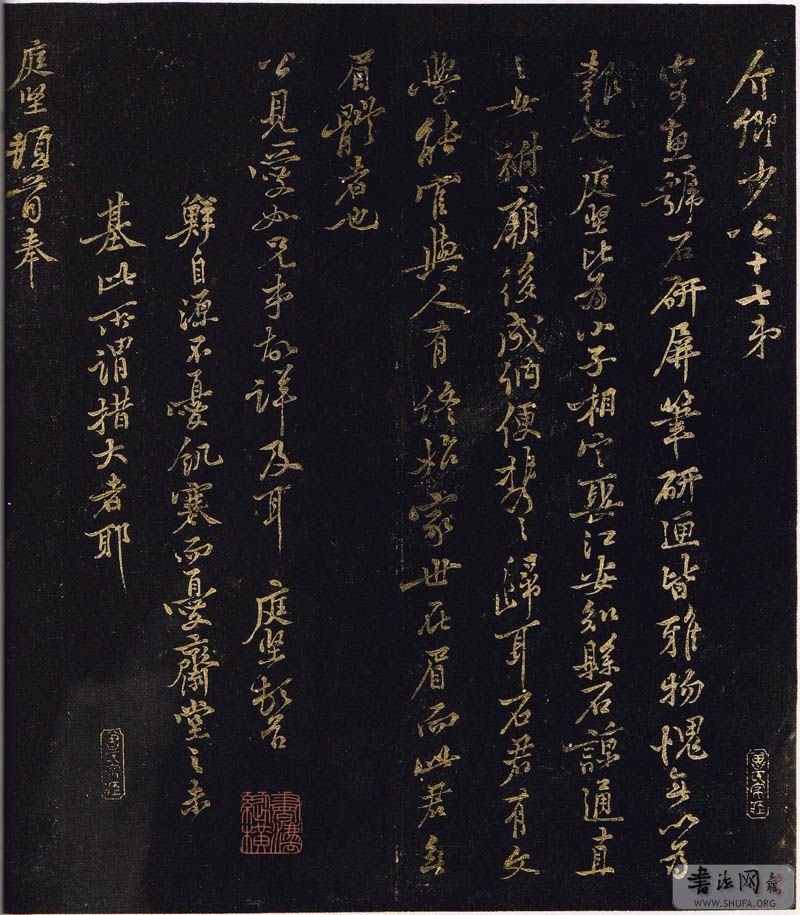 介卿少公十七弟
寄惠虢石研屏筆研匣皆雅物愧無以為
報也庭堅比為小子相定娶江安知縣石諒通直
之女祔廟後成婚便携之歸耳石君有文
學能官與人有終始家世在眉而此君無
眉體者也
公見愛如兄弟故詳及耳 庭堅頓首
鮮自源不憂飢寒而憂齋堂之未
基此所謂措大者耶
庭堅頓首奉
書法網
WWW.SHUFA.ORG